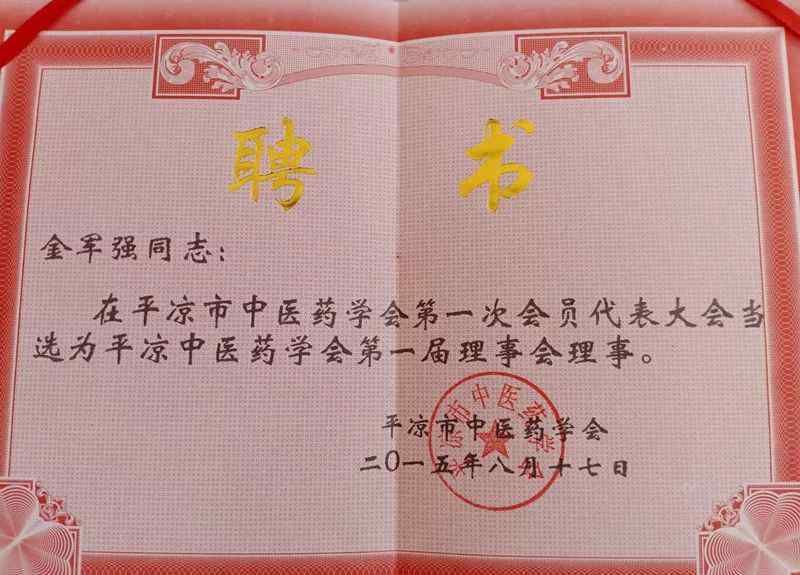 聘书
金军强同志：
在平凉市中医药学会第一次会员代表大会当
选为平凉中医药学会第一届理事会理事。
平凉市中医药学会
二〇一五年八月十七日
平凉市中医药学会